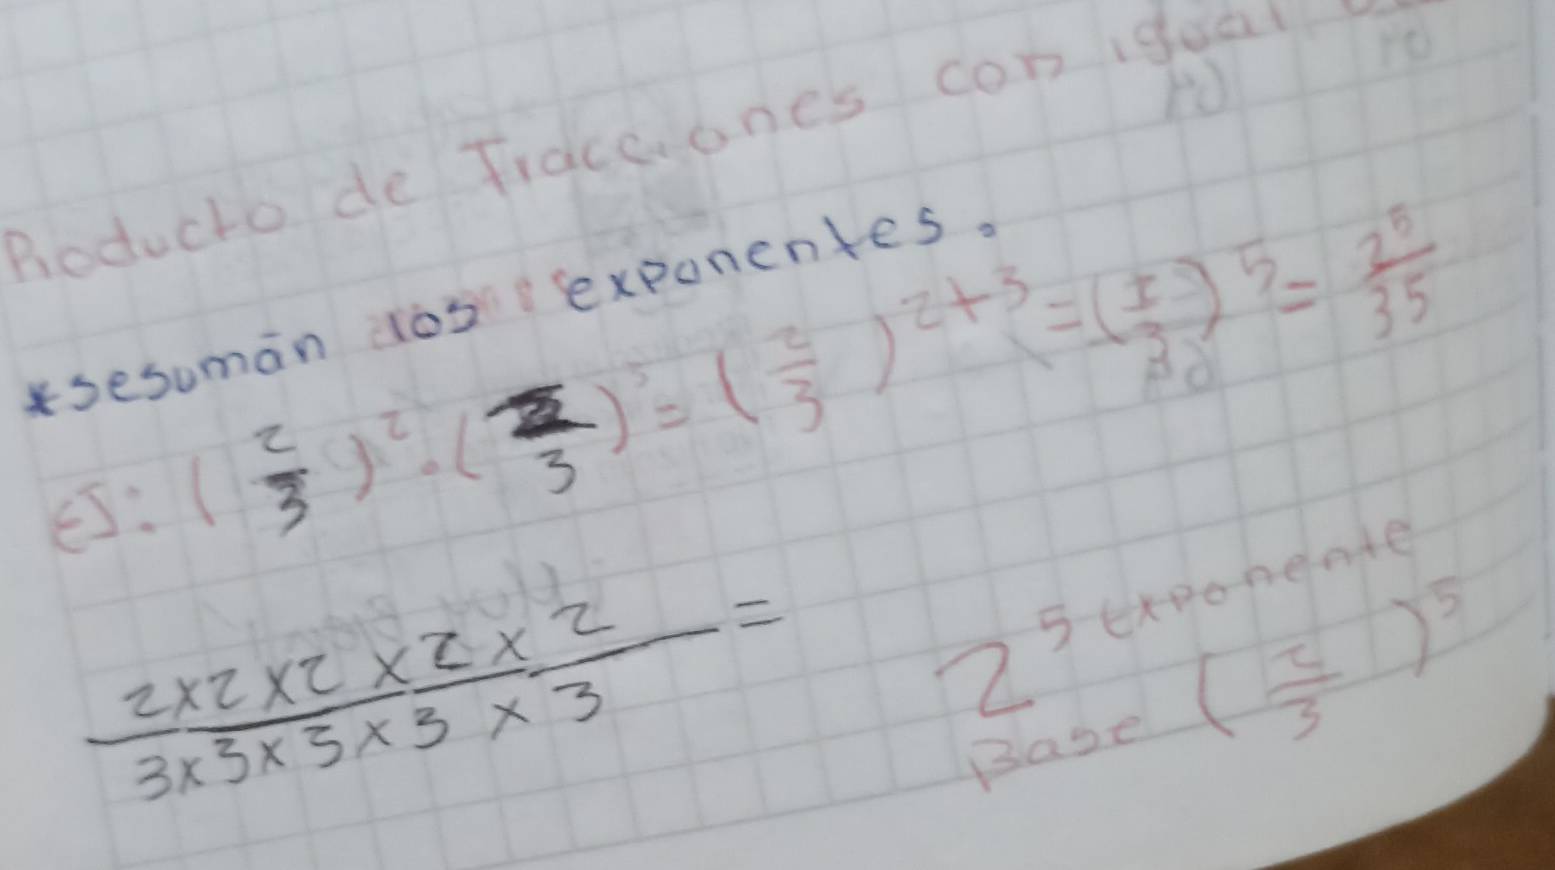 Producto de Fracciones con igual
*sesumán los exponentes.
EJ: (2/3)² · (2/3)³ = (2/3)²⁺³ = (2/3)⁵ = 2⁵/35
2x2x2x2x2 / 3x3x3x3x3 =
2⁵ exponente
Base (2/3)⁵